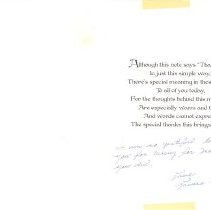 Although this note says "Tha
In just this simple way,
There's special meaning in these
To all of you today,
For the thoughts behind this m
Are especially warm and
And words cannot expre
The special thanks this brings
I am so grateful to
you for
you did.
Love,